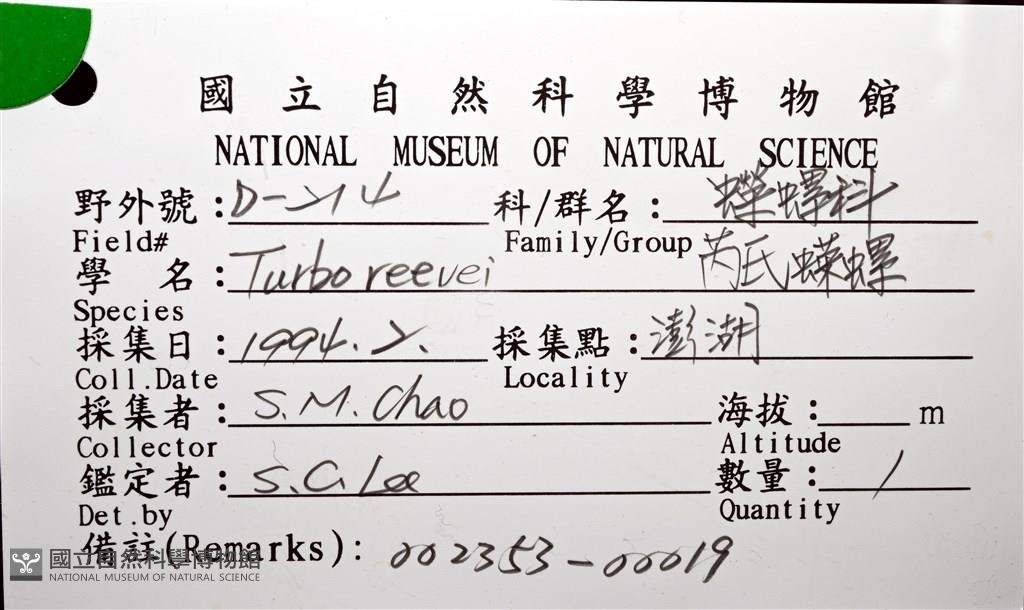 國立自然科學博物館
NATIONAL MUSEUM OF NATURAL SCIENCE
野外號：D-214 科/群名：蠑螺科
Field# Family/Group
學 名：Turbo reevei 芮氏蠑螺
Species
採集日：1994.2. 採集點：澎湖
Coll.Date Locality
採集者：S.M.Chao 海拔： m
Collector Altitude
鑑定者：S.C.Lee 數量：1
Det.by Quantity
備註(Remarks)：002353-00019
國立自然科學博物館
NATIONAL MUSEUM OF NATURAL SCIENCE